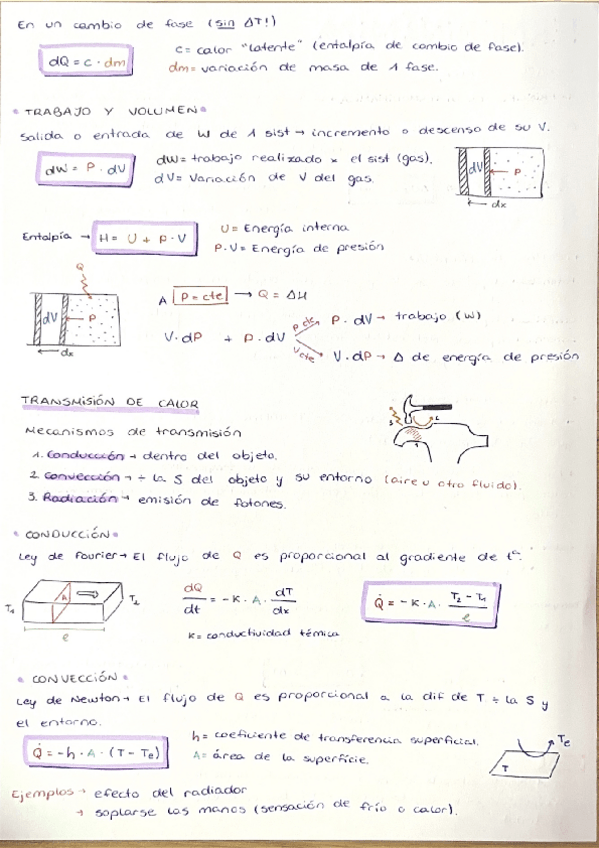 En un cambio de fase (sin ΔT!)
dQ = c · dm
c = calor "latente" (entalpía de cambio de fase).
dm = variación de masa de 1 fase.
• TRABAJO Y VOLUMEN •
Salida o entrada de W de 1 sist → incremento o descenso de su V.
dW = P · dV
dW = trabajo realizado × el sist (gas).
dV = Variación de V del gas.
dV P
dx
Entalpía → H = U + P · V
U = Energía interna
P·V = Energía de presión
Q
dV P
dx
A P = cte → Q = ΔH
V · dP + P · dV
P cte P · dV → trabajo (W)
V cte V · dP → Δ de energía de presión
TRANSMISIÓN DE CALOR
Mecanismos de transmisión
1. Conducción → dentro del objeto.
2. Convección → ÷ la S del objeto y su entorno (aire u otro fluido).
3. Radiación → emisión de fotones.
• CONDUCCIÓN •
Ley de Fourier → El flujo de Q es proporcional al gradiente de tª.
T₁ A T₂
e
dQ/dt = - K · A · dT/dx
Q̇ = - K · A · (T₂ - T₁)/e
K = conductividad térmica
• CONVECCIÓN •
Ley de Newton → El flujo de Q es proporcional a la dif de T ÷ la S y
el entorno.
Q̇ = - h · A · (T - Te)
h = coeficiente de transferencia superficial.
A = área de la superficie.
T Te
Ejemplos → efecto del radiador
→ soplarse las manos (sensación de frío o calor).